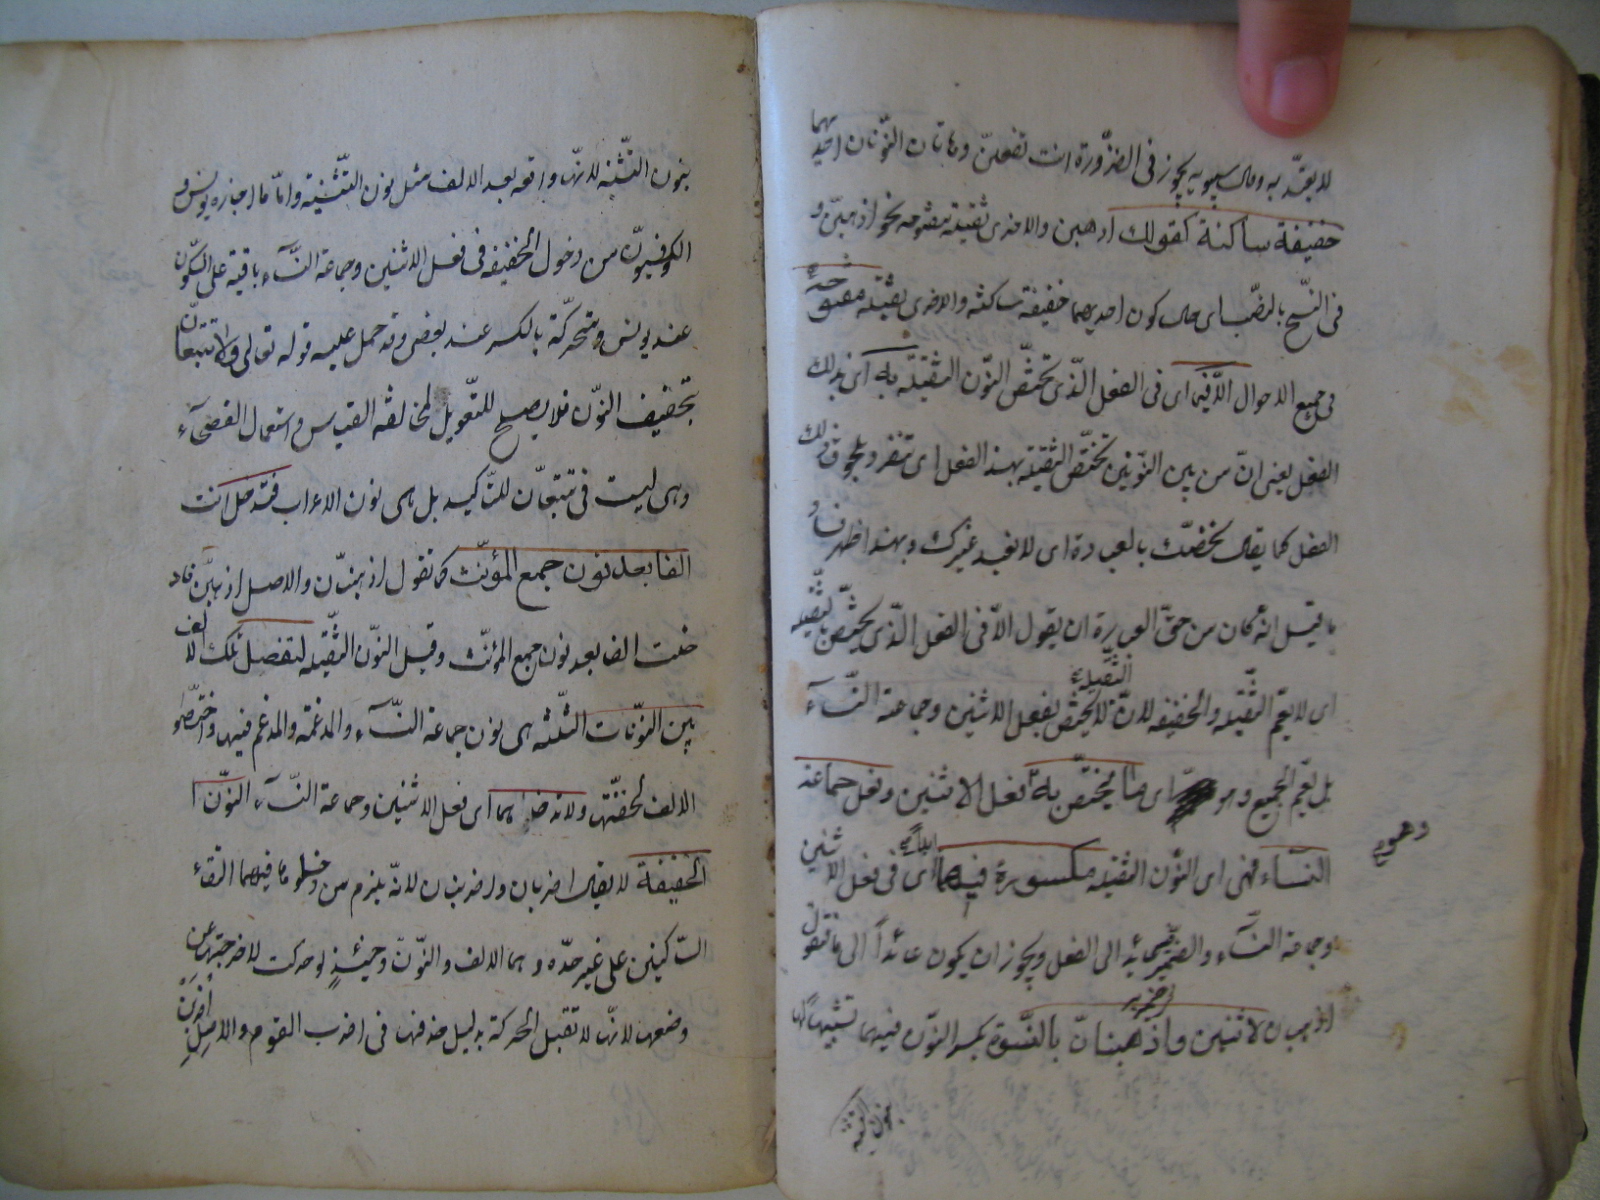 لا يعتدّ به وقال سيبويه يجوز فى الضرورة انت تفعلنّ وهاتان النّونان احديهما
خفيفة ساكنة كقولك اذهبن والاخرى ثقيلة مفتوحة نحو اذهبنّ و
فى النسخ بالنصب اى حال كون احديهما خفيفة ساكنة والاخرى ثقيلة مفتوحة
فى جميع الاحوال الاّ فيما اى فى الفعل الّذى تختصّ النّون الثقيلة به اى بذلك
الفعل يعنى انّ من بين النّونين تختصّ الثقيلة بهذا الفعل اى تنفرد بلحوق ذلك
الفعل كما يقال نخصّك بالعبادة اى لا نعبد غيرك وبهذا ظهر فساد
ما قيل انّه كان من حقّ العبارة ان يقول الاّ فى الفعل الّذى يختصّ بالثقيلة
اى لا يعمّ الثقيلة والخفيفة لانّ الثقيلة لا تختصّ بفعل الاثنين وجماعة النّسآء
بل تعمّ الجميع وهو اى ما يختصّ به فعل الاثنين وفعل جماعة
النسآء فهى اى النّون الثقيلة مكسورة فيهما ابدا اى فى فعل الاثنين
وجماعة النسآء والضمير عائد الى الفعل ويجوز ان يكون عائداً الى ما فتقول
اذهبانّ لاثنين واذهبنانّ بالنّسوة بكسر النّون فيهما تشبيهاً لها
بنون التثنية
بنون التّثنية لانّها واقعة بعد الالف مثل نون التّثنية وامّا ما اجازه يونس و
الكوفيّون من دخول الخفيفة فى فعل الاثنين وجماعة النّسآء باقية على السّكون
عند يونس ومتحرّكة بالكسر عند بعض وقد حمل عليه قوله تعالى ولا تتّبعان
بتخفيف النّون فلا يصلح للتّعويل لمخالفة القياس واستعمال الفصحآء
وهى ليست فى تتبعان للتّاكيد بل هى نون الاعراب فتدخل انت
الفا بعد نون جمع المؤنّث كما تقول اذهبنانّ والاصل اذهبنّ فاد
خلت الفا بعد نون جمع المؤنّث وقبل النّون الثّقيلة لتفصل تلك الالف
بين النونات الثلثة هى نون جماعة النّسآء والمدغمة والمدغم فيها واختصّوا
الالف لخفّتها ولا تدخلهما اى فعل الاثنين وجماعة النّسآء النّون ا
الخفيفة لا يقال اضربان ولا اضربنان لانّه يلزم من دخولها فيهما التقاء
السّاكنين على غير حدّه وهما الالف والنّون وحينئذٍ لو حركت لاخرجتها عن
وضعها لانّها لا تقبل الحركة بدليل حذفها فى اضرب القوم والاصل اضربن